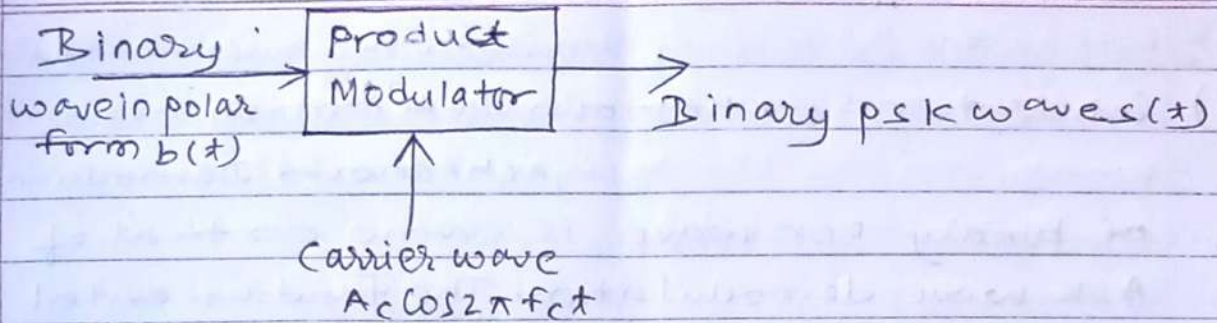 Binary
wave in polar
form b(t)
product
Modulator
Binary psk waves(t)
Carrier wave
Ac cos2πfct